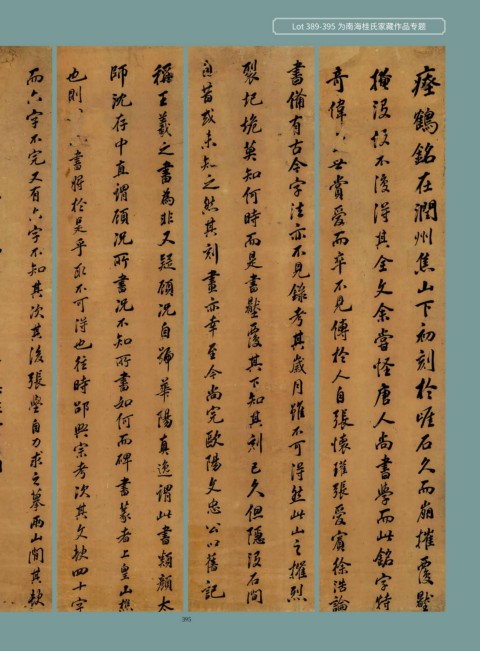 Lot 389-395 为南海桂氏家藏作品专题
瘞鶴銘在潤州焦山下初刻於崖石久而崩摧覆壓
掩没故不復得其全文余嘗怪唐人尚書學而此銘字特
奇偉世賞愛而卒不見傳於人自張懷瓘張愛賓徐浩論
書備有古今字法亦不見錄考其歲月雖不可得然此山之摧烈
裂圮垝莫知何時而是書壓覆其下知其刻已久但隱没石間
自昔或未知之然其刻畫亦幸至今尚完歐陽文忠公以舊記
稱王羲之書為非又疑顧况自號華陽真逸謂此書類顏太
師沈存中直謂顧况所書况不知所書如何而碑書篆者上皇山樵
也則書將於吳乎取不可得也往時邵興宗考次其文缺四十字
而六字不完又有六字不知其次其後張壆自力求之摹兩山間其缺
395